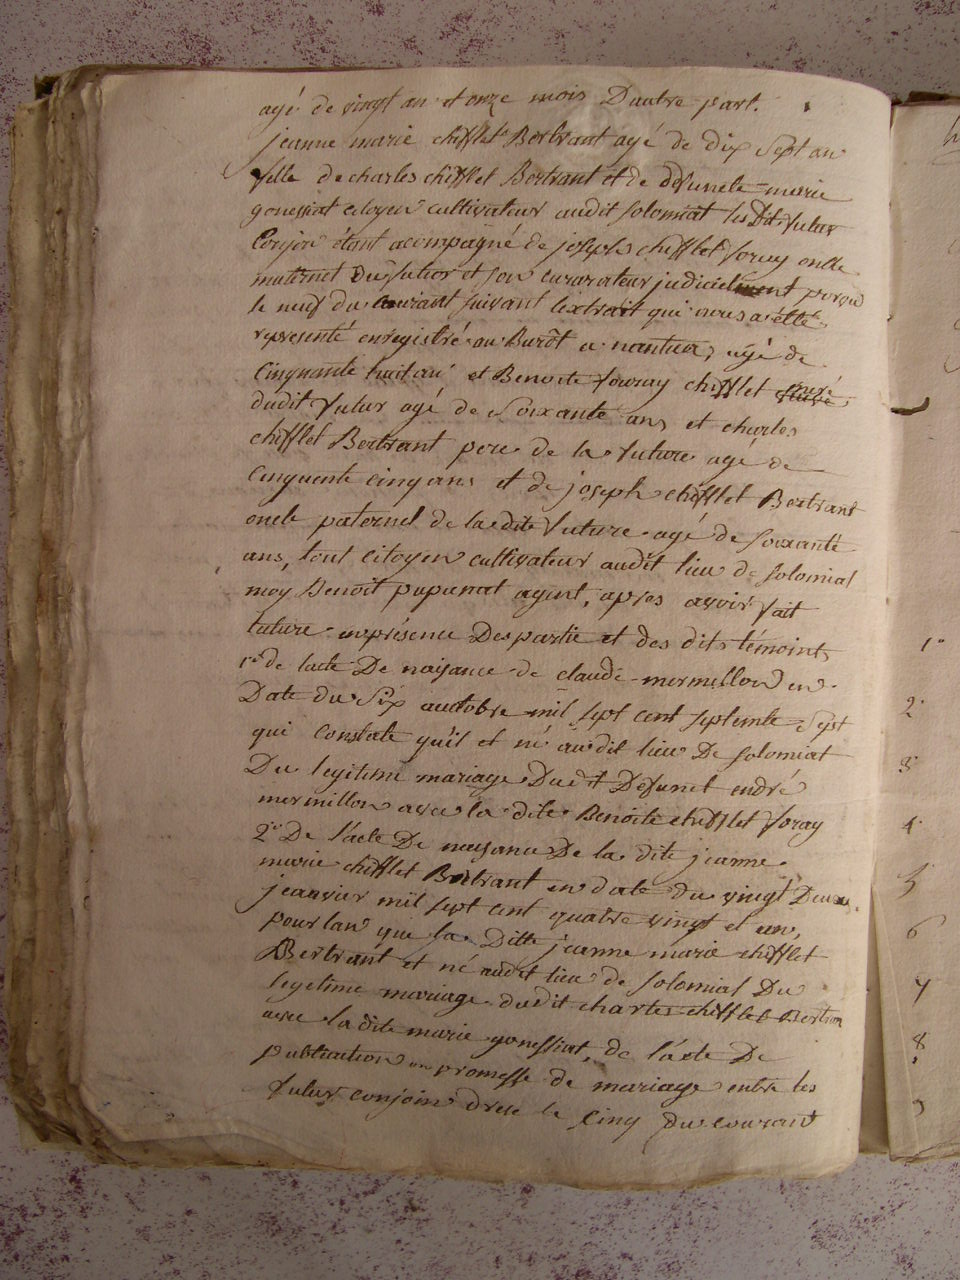 agé de vingt an et onze mois Dautre part.
jeanne marie chifflet Bertrant agé de dix sept an
fille de charles chifflet Bertrant et de defunete marie
gonessiat citoyen cultivateur audit solomiat les Dit futur
Conjoin étant acompagné de joseph chifflet foray oncle
maternel du futur et son curorateur judiciel porvu
le neuf du courant suivant lextrait qui nous a étté
representé enregistré au Burôt a nantua, agé de
Cinquante huit an et Benoite fovray chifflet meré
dudit futur agé de Soixante ans et charles
chifflet Bertrant pere de la future agé de
Cinquente cinq ans et de joseph chifflet Bertrant
oncle paternel de la dite future agé de soixante
ans, tout citoyen cultivateur audit lieu de solomiat
moy Benoit pupunat agent, apres avoir fait
luture en présence Des partie et des dits témoints
1er de lacte De naisance de claude mermillon en
Date du Six auctobre mil sept cent septente Sept
qui constate qu'il et né audit lieu De solomiat
Du legitime mariage Dudit Defunet endré
mermillon avec la dite Benoite chifflet foray
2e De l'acte De naisance De la dite jeanne
marie chifflet Bertrant en date du vingt Deux
jeanvier mil sept cent quatre vingt et un,
pour lan que la Ditte jeanne marie chifflet
Bertrant et né audit lieu de solomiat Du
legitime mariage dudit charles chifflet Bertran
avec la dite marie gonessiat, de l'acte De
publication en promesse de mariage entre les
futur conjoin drese le cinq du courant
1°
2°
3°
4°
5
6
7
8
9